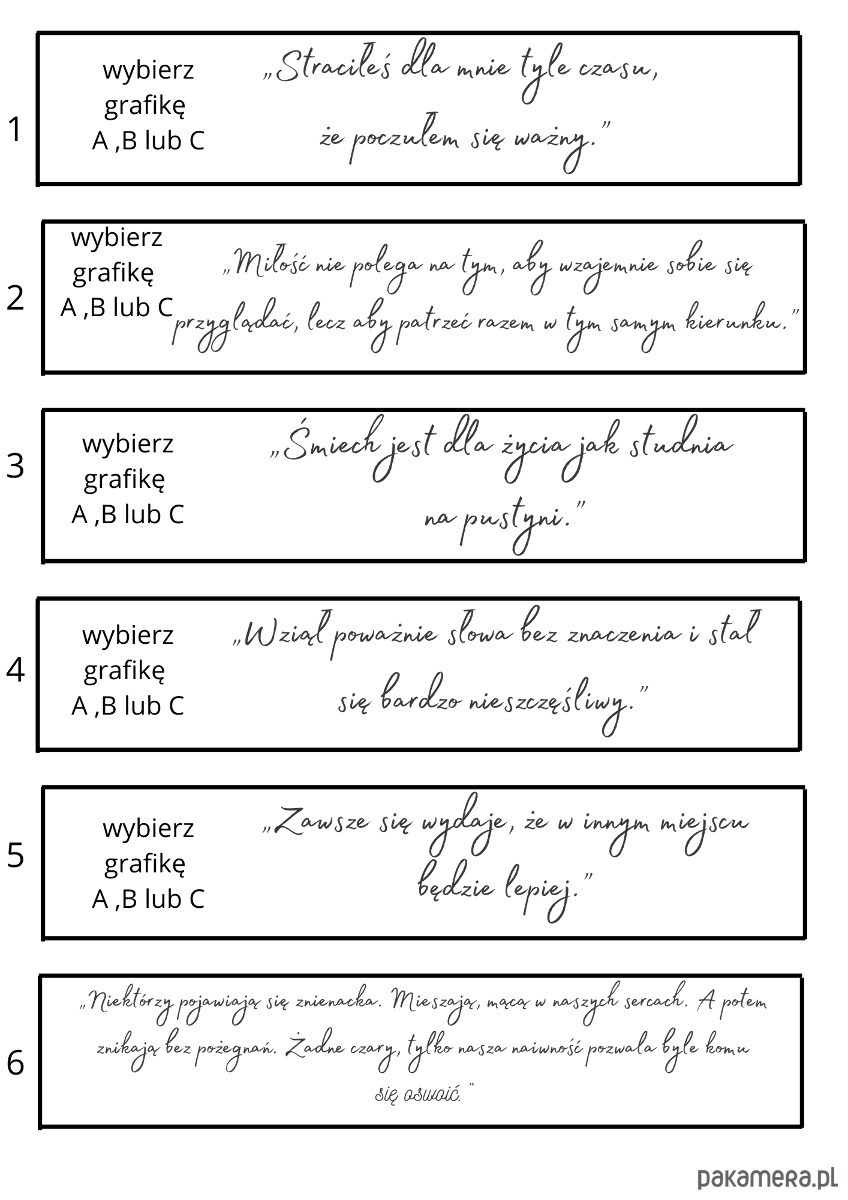 1
wybierz
grafikę
A ,B lub C
„Straciłeś dla mnie tyle czasu,
że poczułem się ważny.”
2
wybierz
grafikę
A ,B lub C
„Miłość nie polega na tym, aby wzajemnie sobie się
przyglądać, lecz aby patrzeć razem w tym samym kierunku.”
3
wybierz
grafikę
A ,B lub C
„Śmiech jest dla życia jak studnia
na pustyni.”
4
wybierz
grafikę
A ,B lub C
„Wziął poważnie słowa bez znaczenia i stał
się bardzo nieszczęśliwy.”
5
wybierz
grafikę
A ,B lub C
„Zawsze się wydaje, że w innym miejscu
będzie lepiej.”
6
„Niektórzy pojawiają się znienacka. Mieszają, mącą w naszych sercach. A potem
znikają bez pożegnań. Żadne czary, tylko nasza naiwność pozwala byle komu
się oswoić. ”
pakamera.pl